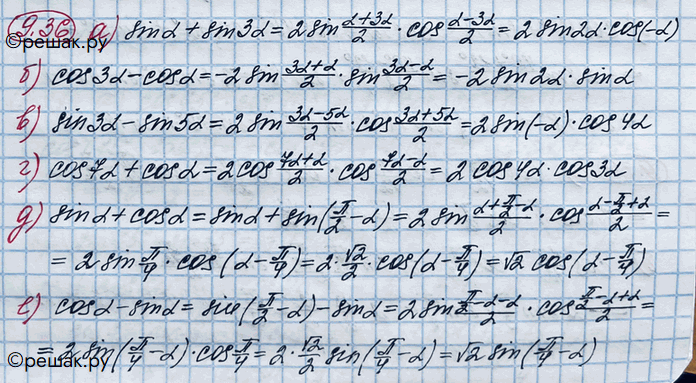 9.36 а) sinα + sin3α = 2 sin (α+3α)/2 · cos (α-3α)/2 = 2 sin2α · cos(-α)
©reшак.ру
б) cos3α - cosα = -2 sin (3α+α)/2 · sin (3α-α)/2 = -2 sin2α · sinα
в) sin3α - sin5α = 2 sin (3α-5α)/2 · cos (3α+5α)/2 = 2 sin(-α) · cos4α
г) cos7α + cosα = 2 cos (7α+α)/2 · cos (7α-α)/2 = 2 cos4α · cos3α
д) sinα + cosα = sinα + sin(π/2 - α) = 2 sin (α+π/2-α)/2 · cos (α-π/2+α)/2 =
= 2 sin π/4 · cos(α - π/4) = 2 · √2/2 · cos(α - π/4) = √2 cos(α - π/4)
е) cosα - sinα = sin(π/2 - α) - sinα = 2 sin (π/2-α-α)/2 · cos (π/2-α+α)/2 =
= 2 sin(π/4 - α) · cos π/4 = 2 · √2/2 sin(π/4 - α) = √2 sin(π/4 - α)
©reшак.ру